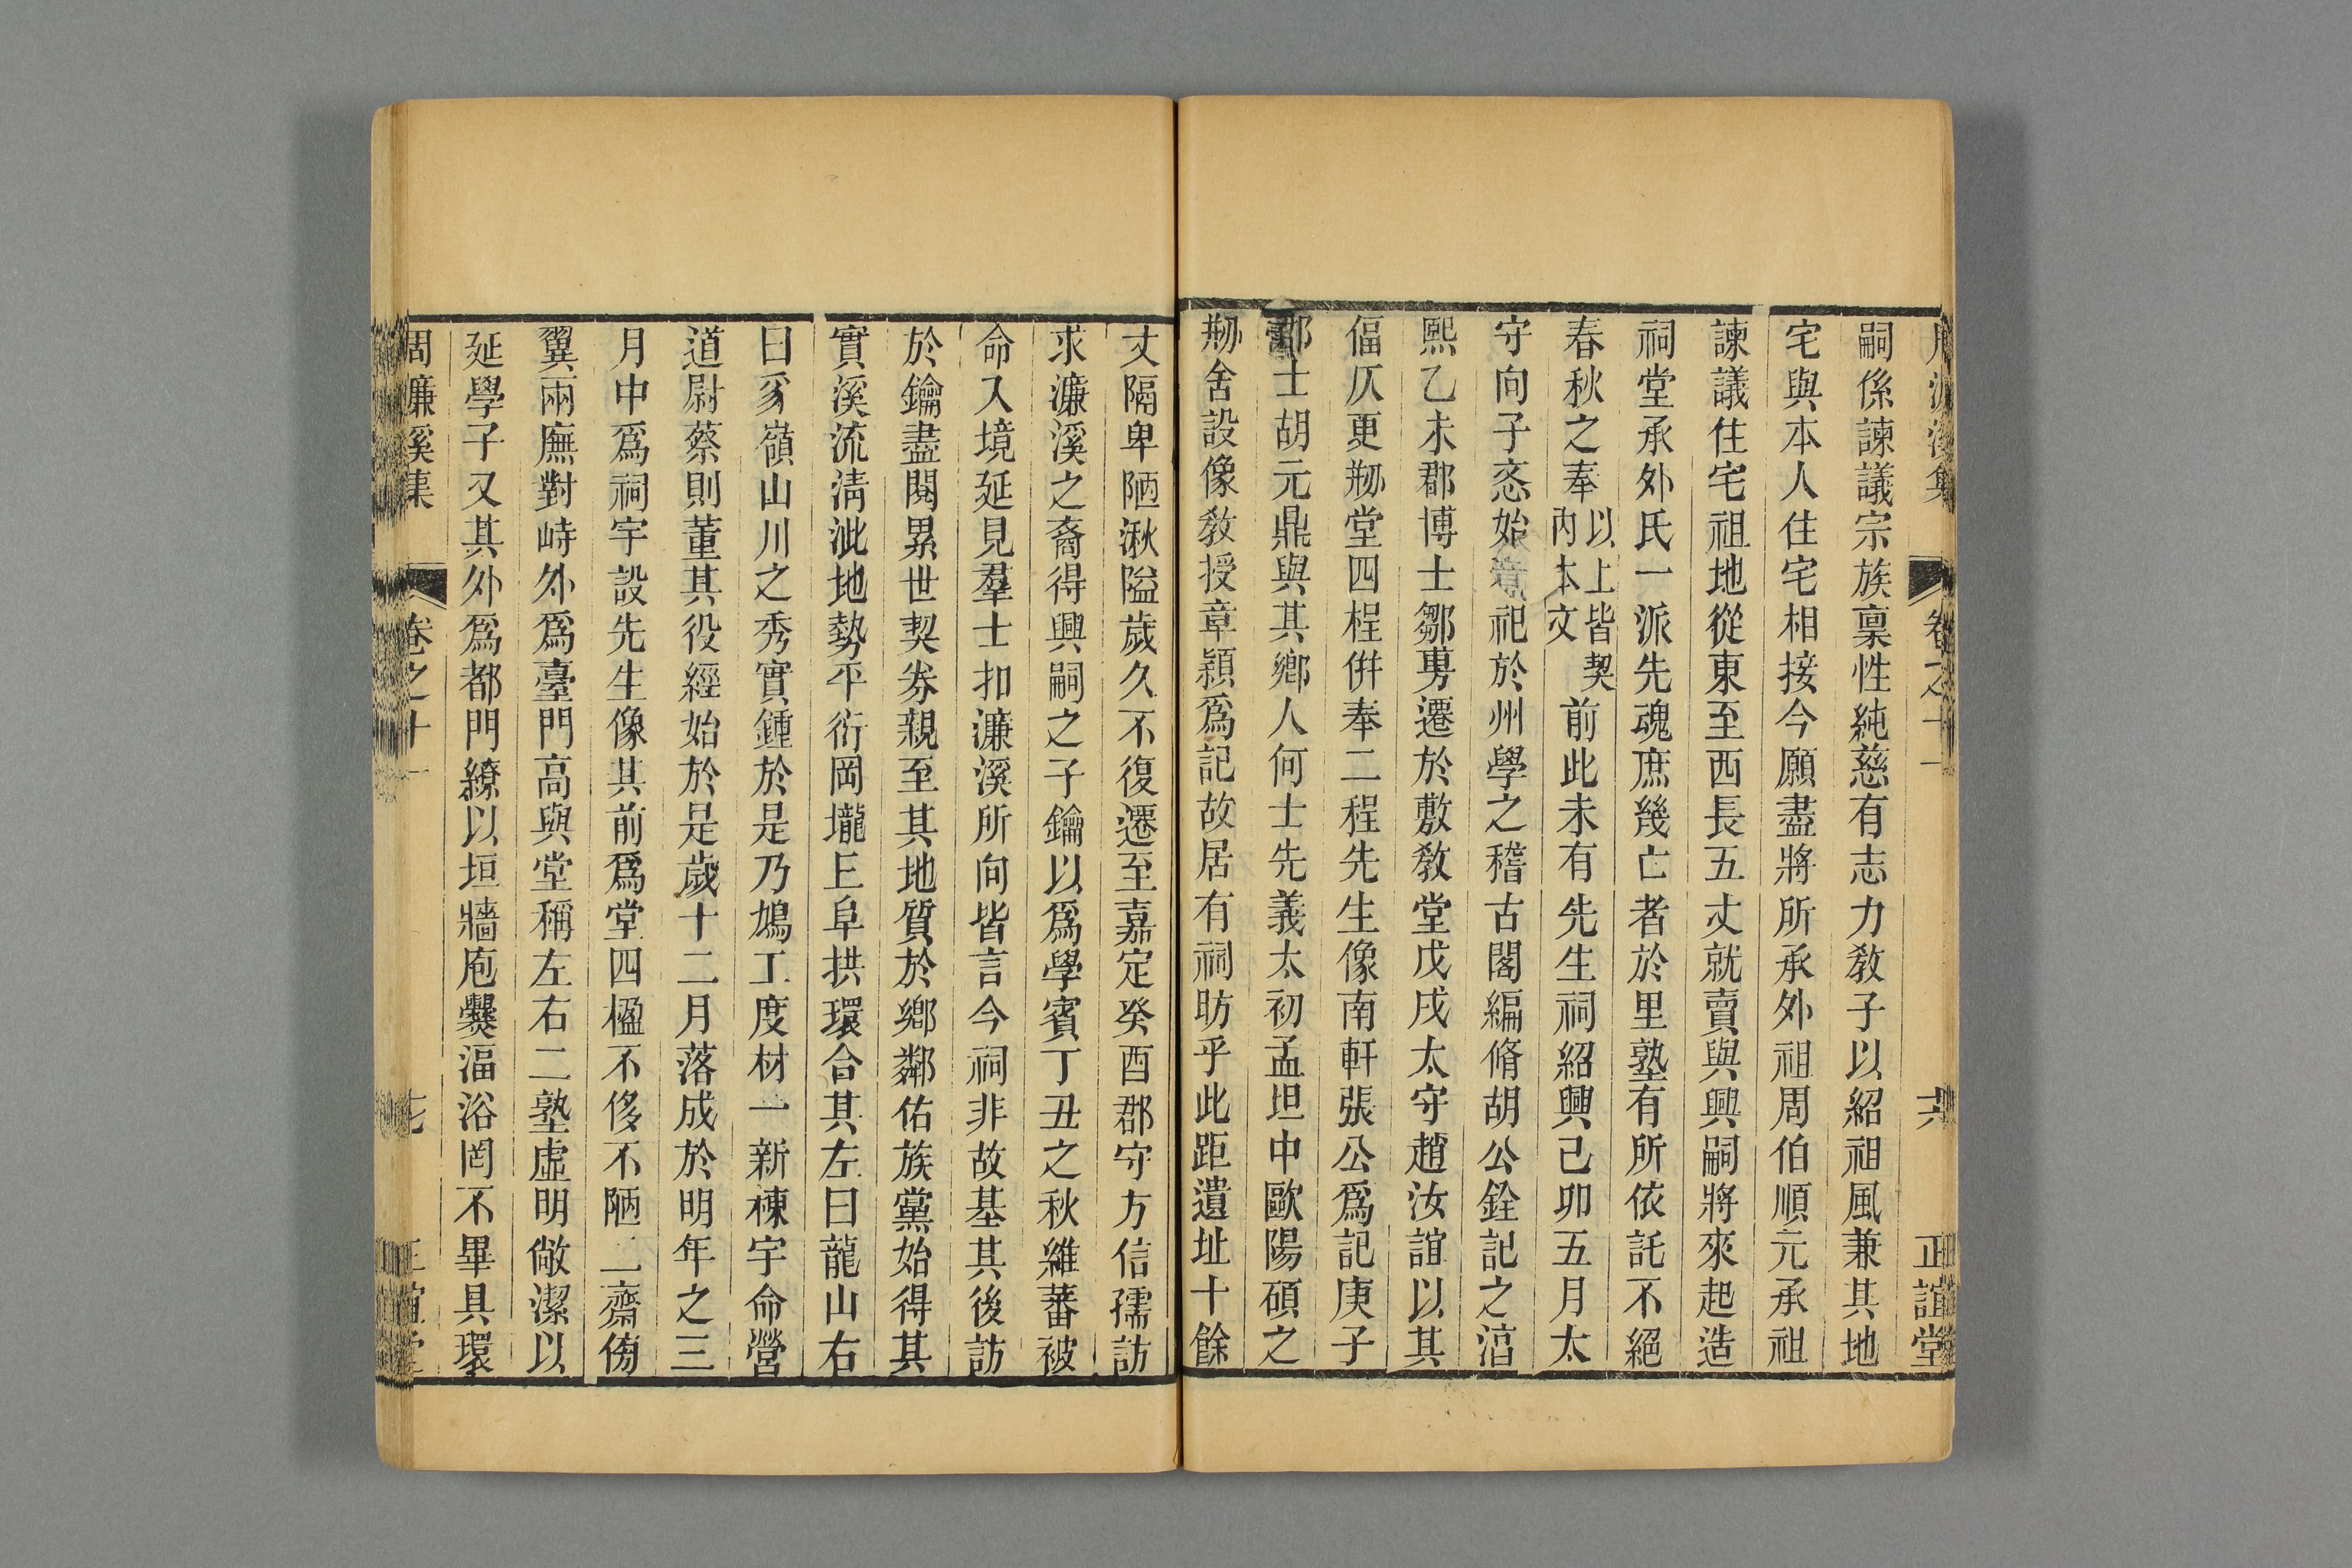 周濂溪集 卷之十一 十六 正誼堂
嗣係諫議宗族稟性純慈有志力敎子以紹祖風兼其地
宅與本人住宅相接今願盡將所承外祖周伯順元承祖
諫議住宅祖地從東至西長五丈就賣與興嗣將來起造
祠堂承外氏一派先魂庶幾亡者於里塾有所依託不絕
春秋之奉以上皆契內本文前此未有先生祠紹興己卯五月太
守向子忞始 祀於州學之稽古閣編脩胡公銓記之淳
熙乙未郡博士鄒旉遷於敷敎堂戊戌太守趙汝誼以其
偪仄更剙堂四桯併奉二程先生像南軒張公爲記庚子
郡士胡元鼎與其鄉人何士先義太初孟坦中歐陽碩之
剙舍設像敎授章潁爲記故居有祠昉乎此距遺址十餘
丈隔卑陋湫隘歲久不復遷至嘉定癸酉郡守方信孺訪
求濂溪之裔得興嗣之子鑰以爲學賓丁丑之秋維蕃被
命入境延見羣士扣濂溪所向皆言今祠非故基其後訪
於鑰盡閱累世契券親至其地質於鄉鄰佑族黨始得其
實溪流淸泚地勢平衍岡壠𠀋阜拱環合其左曰龍山右
曰豸嶺山川之秀實鍾於是乃鳩工度材一新棟宇命營
道尉蔡則董其役經始於是歲十二月落成於明年之三
月中爲祠宇設先生像其前爲堂四楹不侈不陋二齋傍
翼兩廡對峙外爲臺門高與堂稱左右二塾虛明敞潔以
延學子又其外爲都門繚以垣牆庖爨湢浴罔不畢具環
周濂溪集 卷之十一 十七 正誼堂